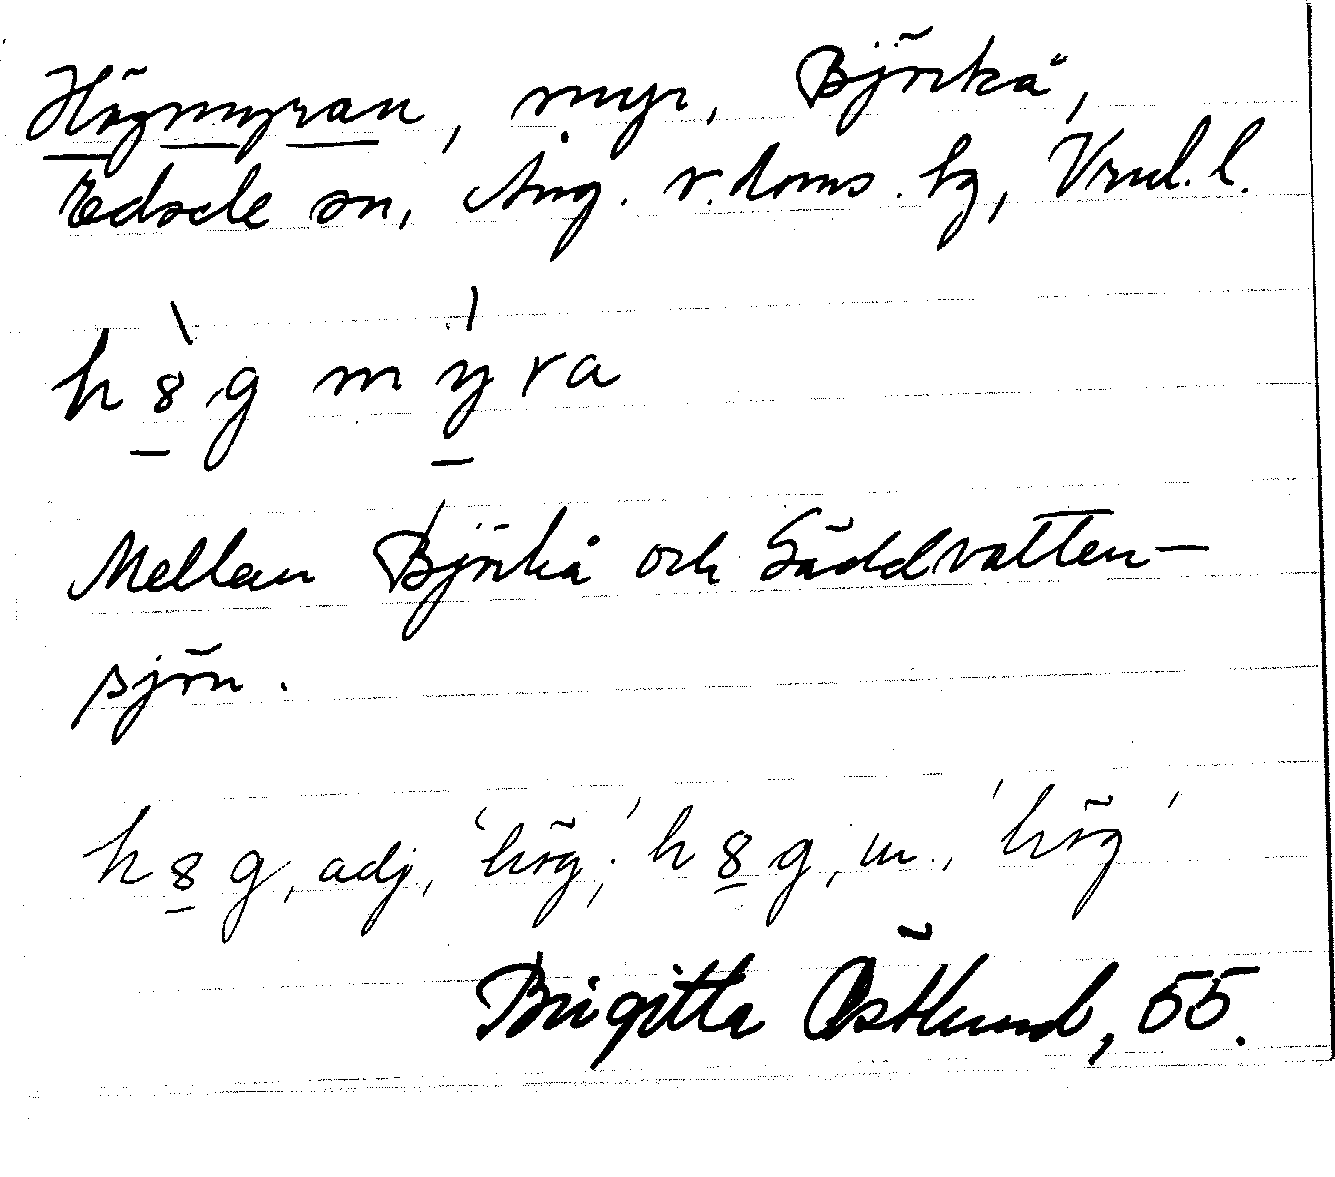 Högmyran, myr, Björkå,
Edsele sn, Ång. v. doms. hg, Vrnl. l.
h8g mýra
Mellan Björkå och Säddvatten-
sjön.
h8g, adj, 'hög,' h8g, m., 'hög'
Brigitta Östlund, 55.